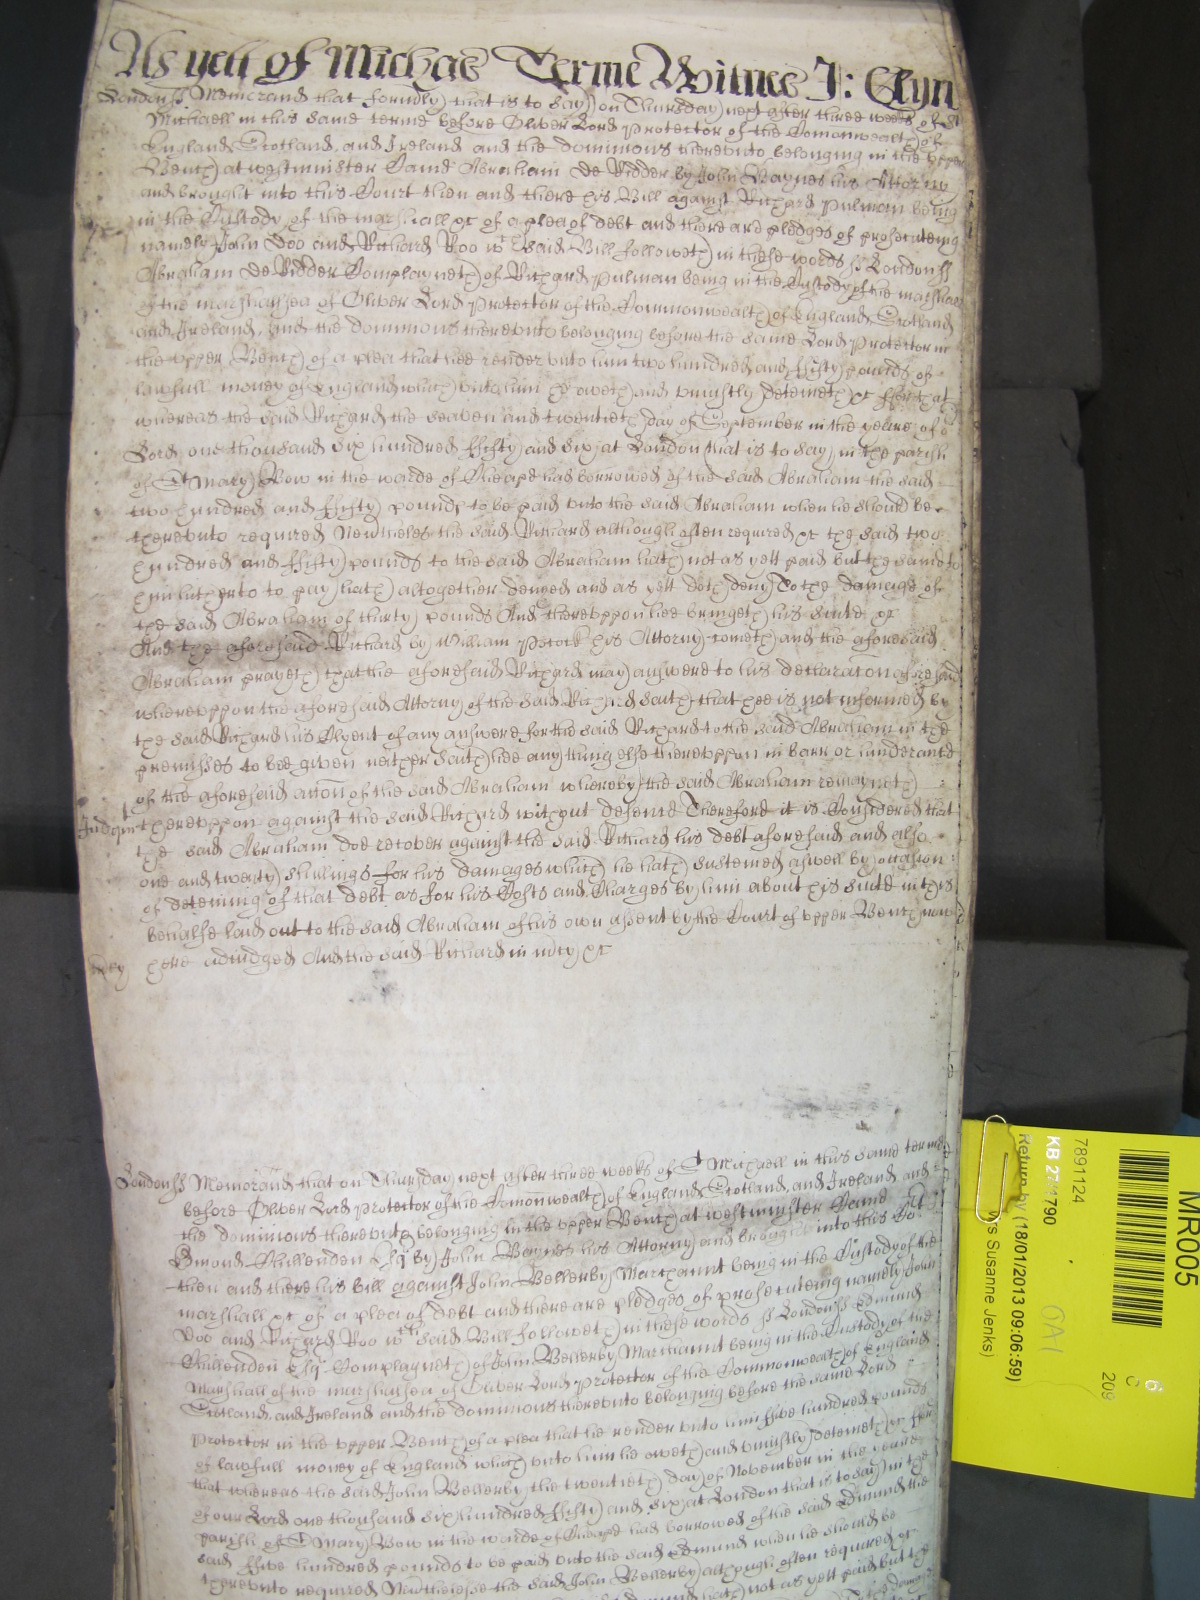 As yett of Michas Terme Witnes J: Glyn
London ss Memorand that formerly that is to say on Thursday next after three weeks of St
Michaell in this same terme before Oliver Lord Protector of the Comonwealth of
England Scotland and Ireland and the dominions thereunto belonging in the upper
Bench at westminster Came Abraham De Ridder by John Baynes his Attorny
and brought into this Court then and there his Bill against Richard Pulman being
in the Custody of the marshall &c of a plea of debt and there are pledges of prosecuteing
namely John Doo and Richard Roo wch said Bill followeth in these words ss London ss
Abraham De Ridder Complayneth of Richard Pulman being in the Custody of the marshall
of the marshalsea of Oliver Lord Protector of the Commonwealth of England Scotland
and Ireland, and the dominions thereunto belonging before the same Lord Protector in
the upper Bench of a plea that hee render unto him two hundred and ffifty pounds of
lawfull money of England which unto him he oweth and uniustly deteineth &c ffor that
whereas the said Richard the seaven and twentieth day of September in the yeare of or
Lord one thousand six hundred ffifty and six at London that is to say in the parish
of St Mary Bow in the warde of Cheape had borrowed of the said Abraham the said
two hundred and ffifty pounds to be paid unto the said Abraham when he should be
thereunto required Neverthelesse the said Richard although often required &c the said two
hundred and ffifty pounds to the said Abraham hath not as yett paid but the same to
him hitherto to pay hath altogether denyed and as yett doth deny To the damage of
the said Abraham of thirty pounds And thereuppon hee bringeth his suite &c
And the aforesaid Richard by William Pocock his Attorny cometh and the aforesaid
Abraham prayeth that the aforesaid Richard may answere to his declaracon aforesaid
whereuppon the aforesaid Attorny of the said Richard saith that hee is not informed by
the said Richard his Clyent of any answere for the said Richard to the said Abraham in the
premisses to bee given neither saith hee any thing else thereuppon in barr or hinderance
of the aforesaid accon of the said Abraham whereby the said Abraham remayneth
Judgmt thereuppon against the said Richard without defence Therefore it is Considered that
the said Abraham doe recover against the said Richard his debt aforesaid and also
one and twenty shillings for his damages which he hath susteined aswell by occasion
of deteining of that debt as for his Costs and Charges by him about his suite in this
behalfe laid out to the said Abraham of his own assent by the Court of upper Bench now
Mcy here adiudged And the said Richard in mercy &c
London ss Memorand that on Thursday next after three weeks of St Michaell in this same terme
before Oliver Lord Protector of the Comonwealth of England Scotland, and Ireland and
the dominions thereunto belonging in the upper Bench at westminster Came
Edmond Chillenden Esqr by John Baynes his Attorny and brought into this Cort
then and there his bill against John Bellerby Marchannt being in the Custody of the
marshall &c of a plea of debt and there are pledges of prosecuteing namely John
Doo and Richard Roo wch said Bill followeth in these words ss London ss Edmund
Chillenden Esqr Complayneth of John Bellerby Marchannt being in the Custody of the
Marshall of the marshalsea of Oliver Lord Protector of the Commonwealth of England
Scotland, and Ireland and the dominions thereunto belonging before the same Lord
Protector in the upper Bench of a plea that he render unto him ffive hundred pounds
of lawfull money of England which unto him he oweth and uniustly deteineth &c ffor
that whereas the said John Bellerby the twentieth day of November in the yeare
of our Lord one thousand six hundred ffifty and six at London that is to say in the
parish of St Mary Bow in the warde of Cheape had borrowed of the said Edmund the
said ffive hundred pounds to be paid unto the said Edmund when he should be
thereunto required Neverthelesse the said John Bellerby although often required &c
hath not as yett paid but the
MR005
7891124
KB 27/1790
Return by (18/01/2013 09:06:59)
s Susanne Jenks)
6
C
209